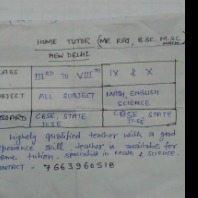 HOME TUTOR (MR RAJ, B.SC. M.SC. MATH)
NEW DELHI
CLASS IIIRD TO VIIITH IX & X
SUBJECT ALL SUBJECT MATH, ENGLISH
SCIENCE
BOARD CBSE, STATE CBSE, STATE
ICSE ICSE
highely qualified teacher with a good
experience skill teacher is available for
home tution, specialist in Math & Science.
CONTACT - 7663960518